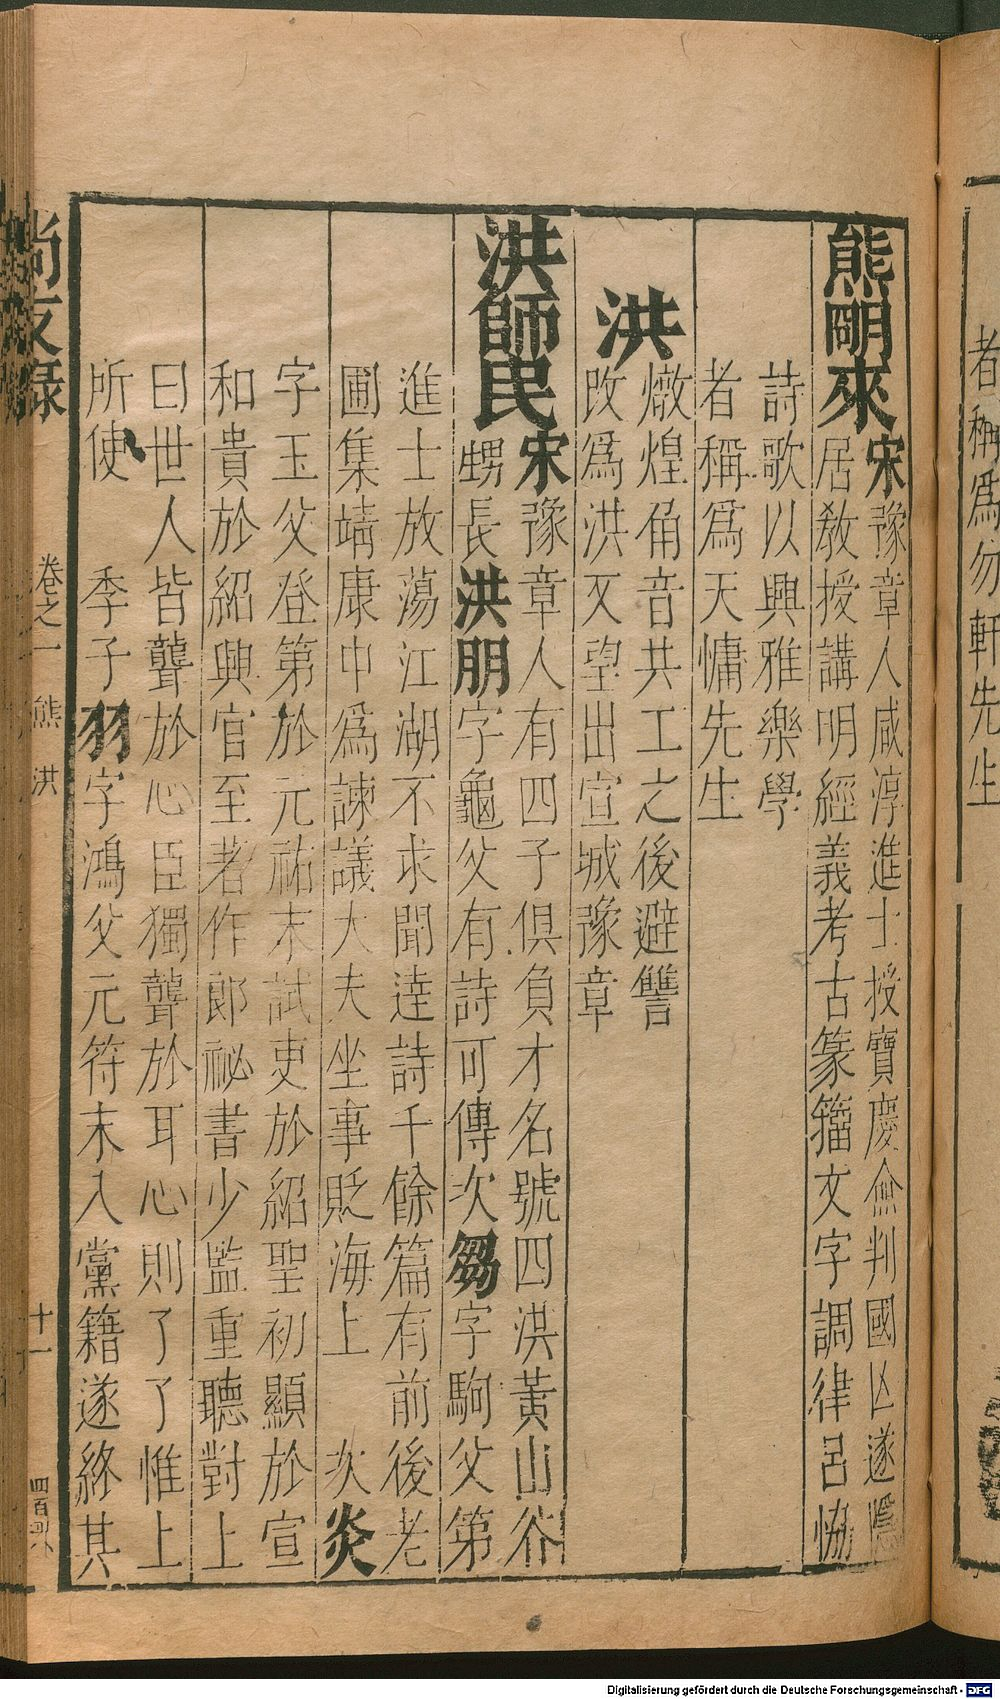 者稱爲勿軒先生
熊朙來
宋豫章人咸淳進士授寶慶僉判國亾遂隱
居敎授講明經義考古篆籒文字調律呂恊
詩歌以興雅樂學
者稱爲天慵先生
洪
燉煌角音共工之後避讐
改爲洪又望出宣城豫章
洪師民
宋豫章人有四子俱負才名號四洪黃山谷
甥長洪朋字龜父有詩可傳次芻字駒父第
進士放蕩江湖不求聞達詩千餘篇有前後老
圃集靖康中爲諫議大夫坐事貶海上 次炎
字玉父登第於元祐末試吏於紹聖初顯於宣
和貴於紹興官至著作郎祕書少監重聽對上
曰世人皆聾於心臣獨聾於耳心則了了惟上
所使 季子羽字鴻父元符末入黨籍遂終其
尚友錄 卷之一 熊 洪 十一
Digitalisierung gefördert durch die Deutsche Forschungsgemeinschaft - DFG